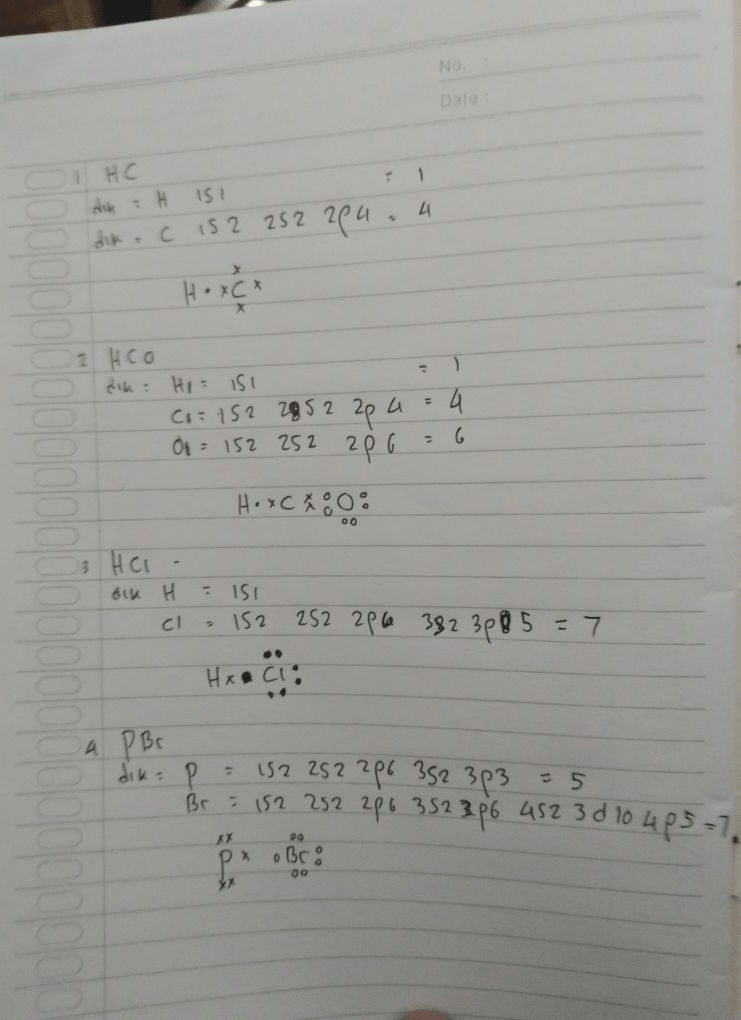 No. :
Date :
1 HC
dik = H 1S1 = 1
dik = C 1S2 2S2 2p4 = 4
H • x C x x x
2 HCO
dik : H1 = 1S1 = 1
C1 = 1S2 2S2 2p4 = 4
O1 = 1S2 2S2 2p6 = 6
H • x C x x o o O o o o o
3 HCl -
dik H = 1S1
Cl = 1S2 2S2 2p6 3S2 3p5 = 7
H x • Cl : •• ••
4 PBr
dik = P = 1S2 2S2 2p6 3S2 3p3 = 5
Br = 1S2 2S2 2p6 3S2 3p6 4S2 3d10 4p5 = 7
xx P x xx o Br o o oo oo